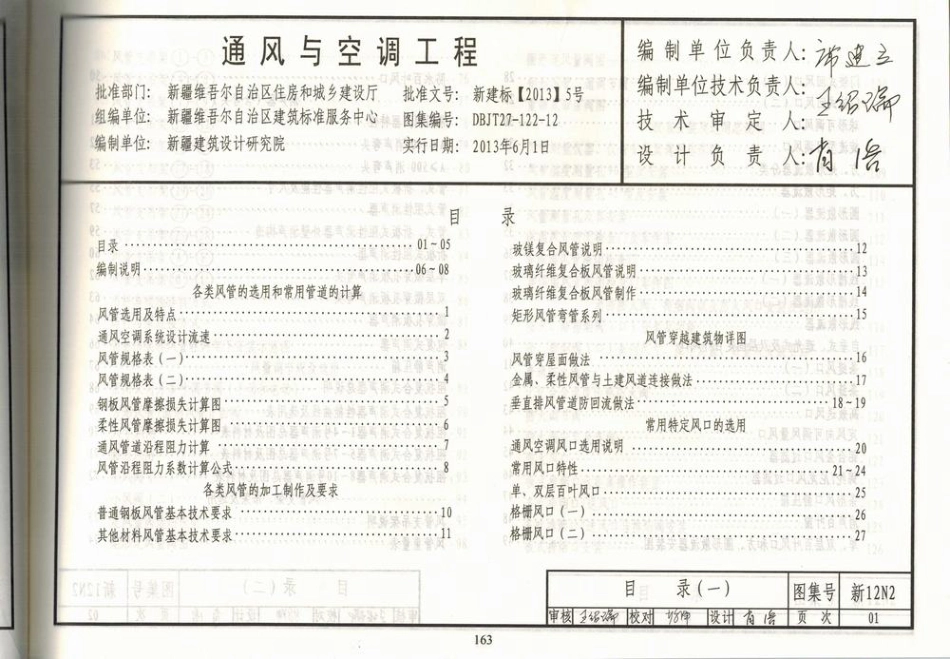 通风与空调工程
批准部门：新疆维吾尔自治区住房和城乡建设厅 批准文号：新建标【2013】5号
组编单位：新疆维吾尔自治区建筑标准服务中心 图集编号：DBJT27-122-12
编制单位：新疆建筑设计研究院 实行日期：2013年6月1日
编制单位负责人：
编制单位技术负责人：
技术审定人：
设计负责人：肖浩
目 录
目录 01～05
编制说明 06～08
各类风管的选用和常用管道的计算
风管选用及特点 1
通风空调系统设计流速 2
风管规格表（一） 3
风管规格表（二） 4
钢板风管摩擦损失计算图 5
柔性风管摩擦损失计算图 6
通风管道沿程阻力计算 7
风管沿程阻力系数计算公式 8
各类风管的加工制作及要求
普通钢板风管基本技术要求 10
其他材料风管基本技术要求 11
玻镁复合风管说明 12
玻璃纤维复合板风管说明 13
玻璃纤维复合板风管制作 14
矩形风管弯管系列 15
风管穿越建筑物详图
风管穿屋面做法 16
金属、柔性风管与土建风道连接做法 17
垂直排风管道防回流做法 18～19
常用特定风口的选用
通风空调风口选用说明 20
常用风口特性 21～24
单、双层百叶风口 25
格栅风口（一） 26
格栅风口（二） 27
目 录（一） 图集号 新12N2
审核 校对 设计 肖浩 页次 01
163